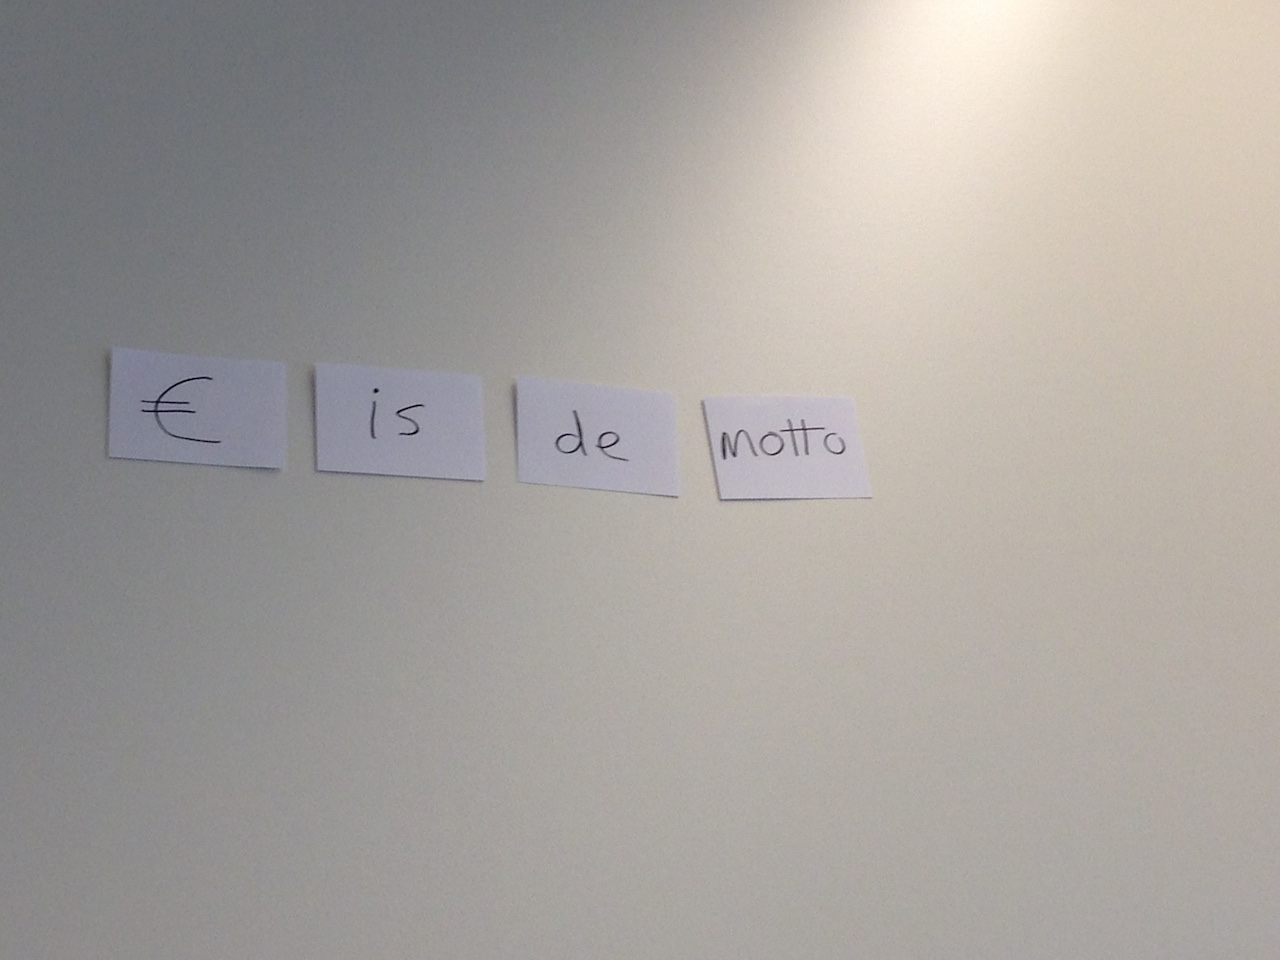 € is de motto